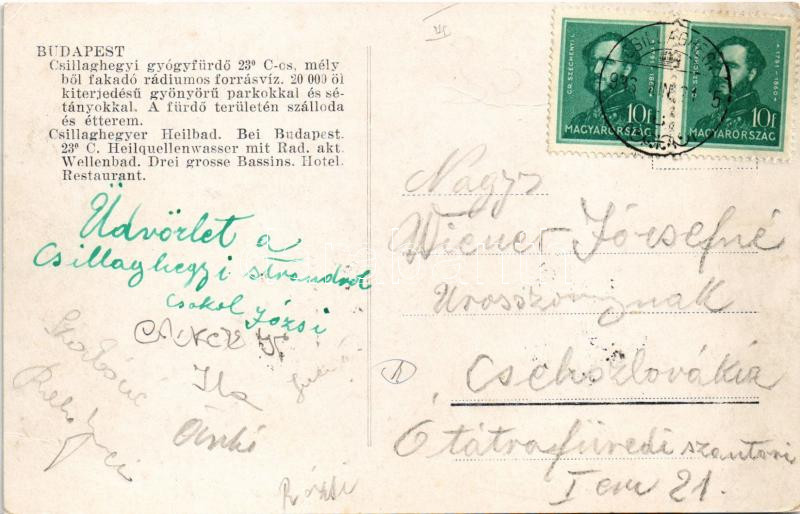 BUDAPEST
Csillaghegyi gyógyfürdő 23° C-os, mély
ből fakadó rádiumos forrásvíz. 20 000 öl
kiterjedésű gyönyörű parkokkal és sé-
tányokkal. A fürdő területén szálloda
és étterem.
Csillaghegyer Heilbad. Bei Budapest.
23° C. Heilquellenwasser mit Rad. akt.
Wellenbad. Drei grosse Bassins. Hotel.
Restaurant.
GR. SZÉCHENYI I. 1791-1860
10f
MAGYARORSZÁG
GR. SZÉCHENYI I. 1791-1860
10f
MAGYARORSZÁG
Üdvözlet a
Csillaghegyi strandról
Csokol Józsi
Ila
Anikó
Rózsi
Nagys
Wiener Józsefné
Urasszonynak
Csehszlovákia
Ótátrafüredi szanatori
I em 21.